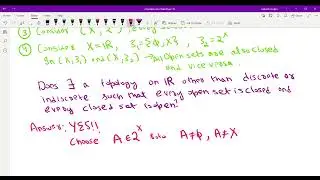 ③ Consider (X, 2^X), every
④ Consider X=ℝ, ℑ₁={φ,X}, ℑ₂=2^X
In (X,ℑ₁) and (X,ℑ₂) → All open sets are also closed
and vice versa.
Does ∃ a topology on ℝ other than discrete or
indiscrete such that every open set is closed and
every closed set is open?
Answer: YES!!
Choose A∈2^X A≠φ, A≠X